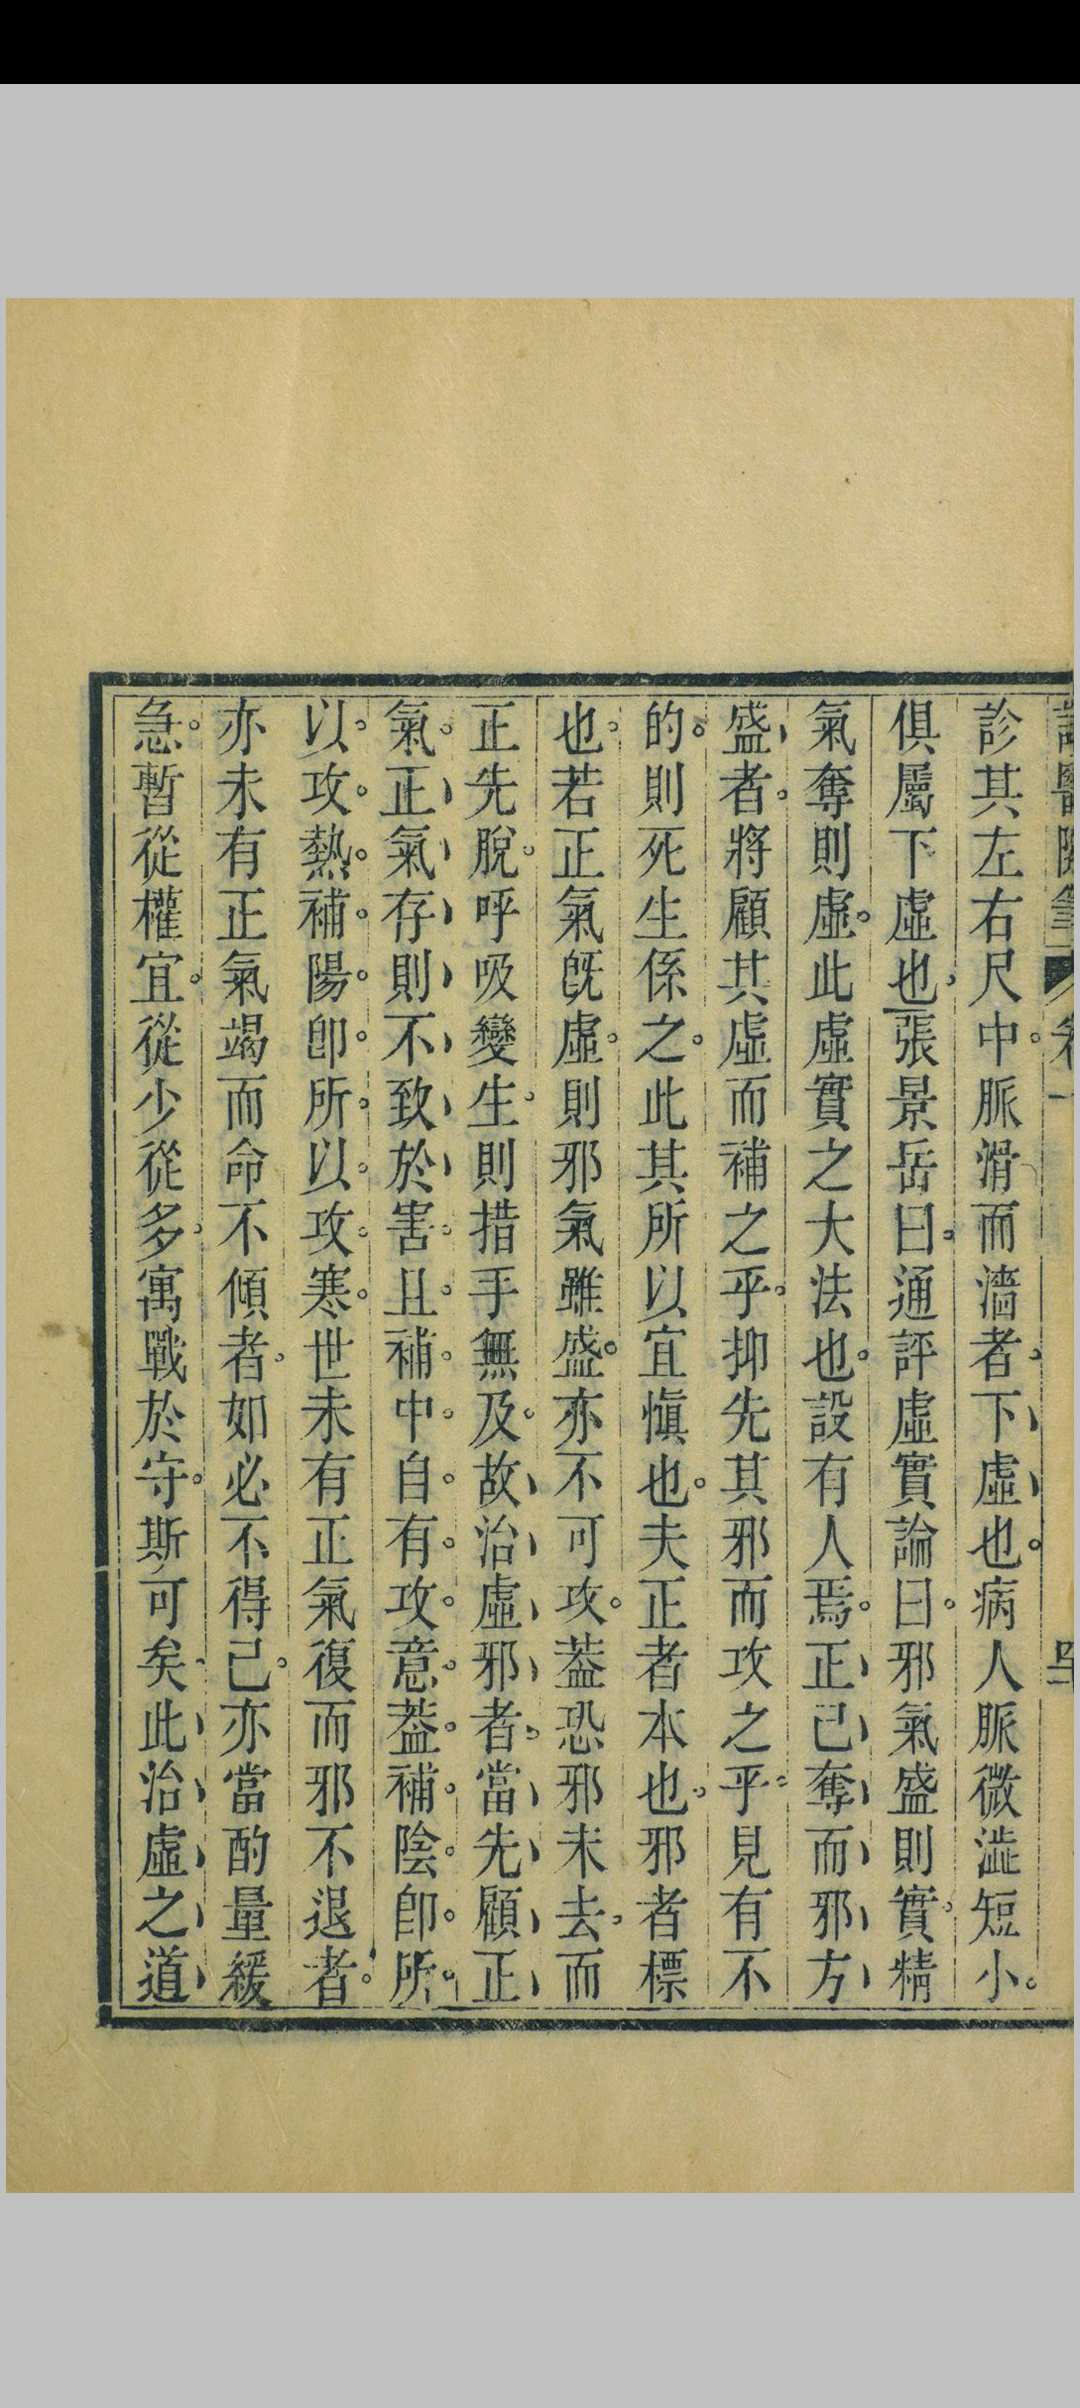 診其左右尺中。脈滑而濇者、下虛也。病人脈微澁短小。
俱屬下虛也、張景岳曰。通評虛實論曰。邪氣盛則實。精
氣奪則虛。此虛實之大法也。設有人焉。正已奪而邪方
盛者。將顧其虛而補之乎。抑先其邪而攻之乎。見有不
的。則死生係之。此其所以宜愼也。夫正者本也。邪者標
也。若正氣旣虛。則邪氣雖盛。亦不可攻。葢恐邪未去、而
正先脫。呼吸變生。則措手無及。故治虛邪者。當先顧正
氣。正氣存則不致於害。且補中自有攻意。葢補陰卽所
以攻熱。補陽卽所以攻寒。世未有正氣復而邪不退者。
亦未有正氣竭而命不傾者。如必不得已。亦當酌量緩
急。暫從權宜。從少從多。寓戰於守。斯可矣、此治虛之道